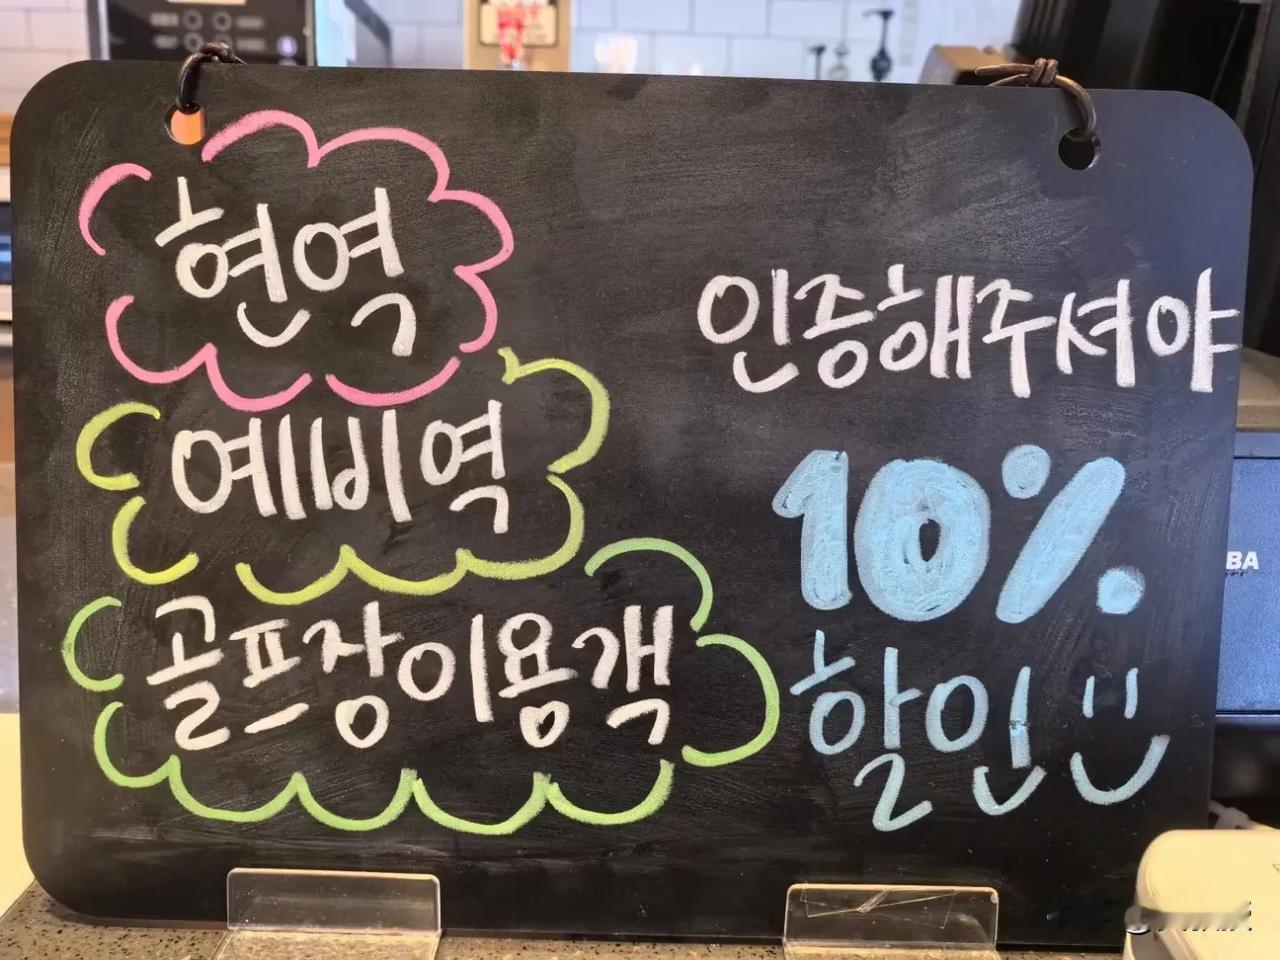 현역
예비역
골프장이용객
인증해주셔야
10%
할인
BA